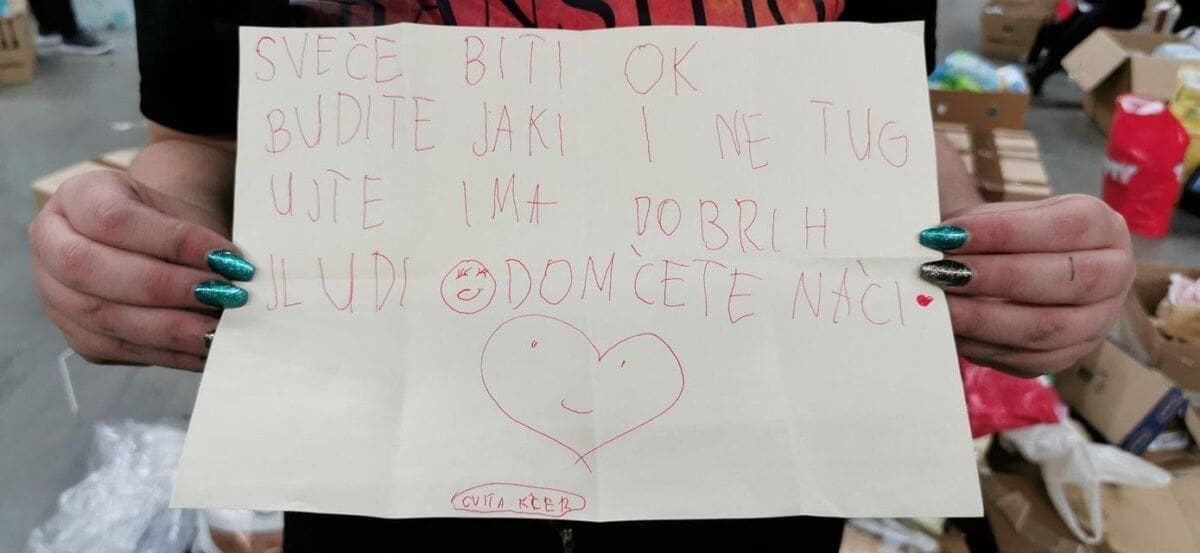 SVEČE BITI OK
BUDITE JAKI I NE TUG
UJTE IMA DOBRIH
JLUDI DOM ČETE NAČI
CVITA KČER